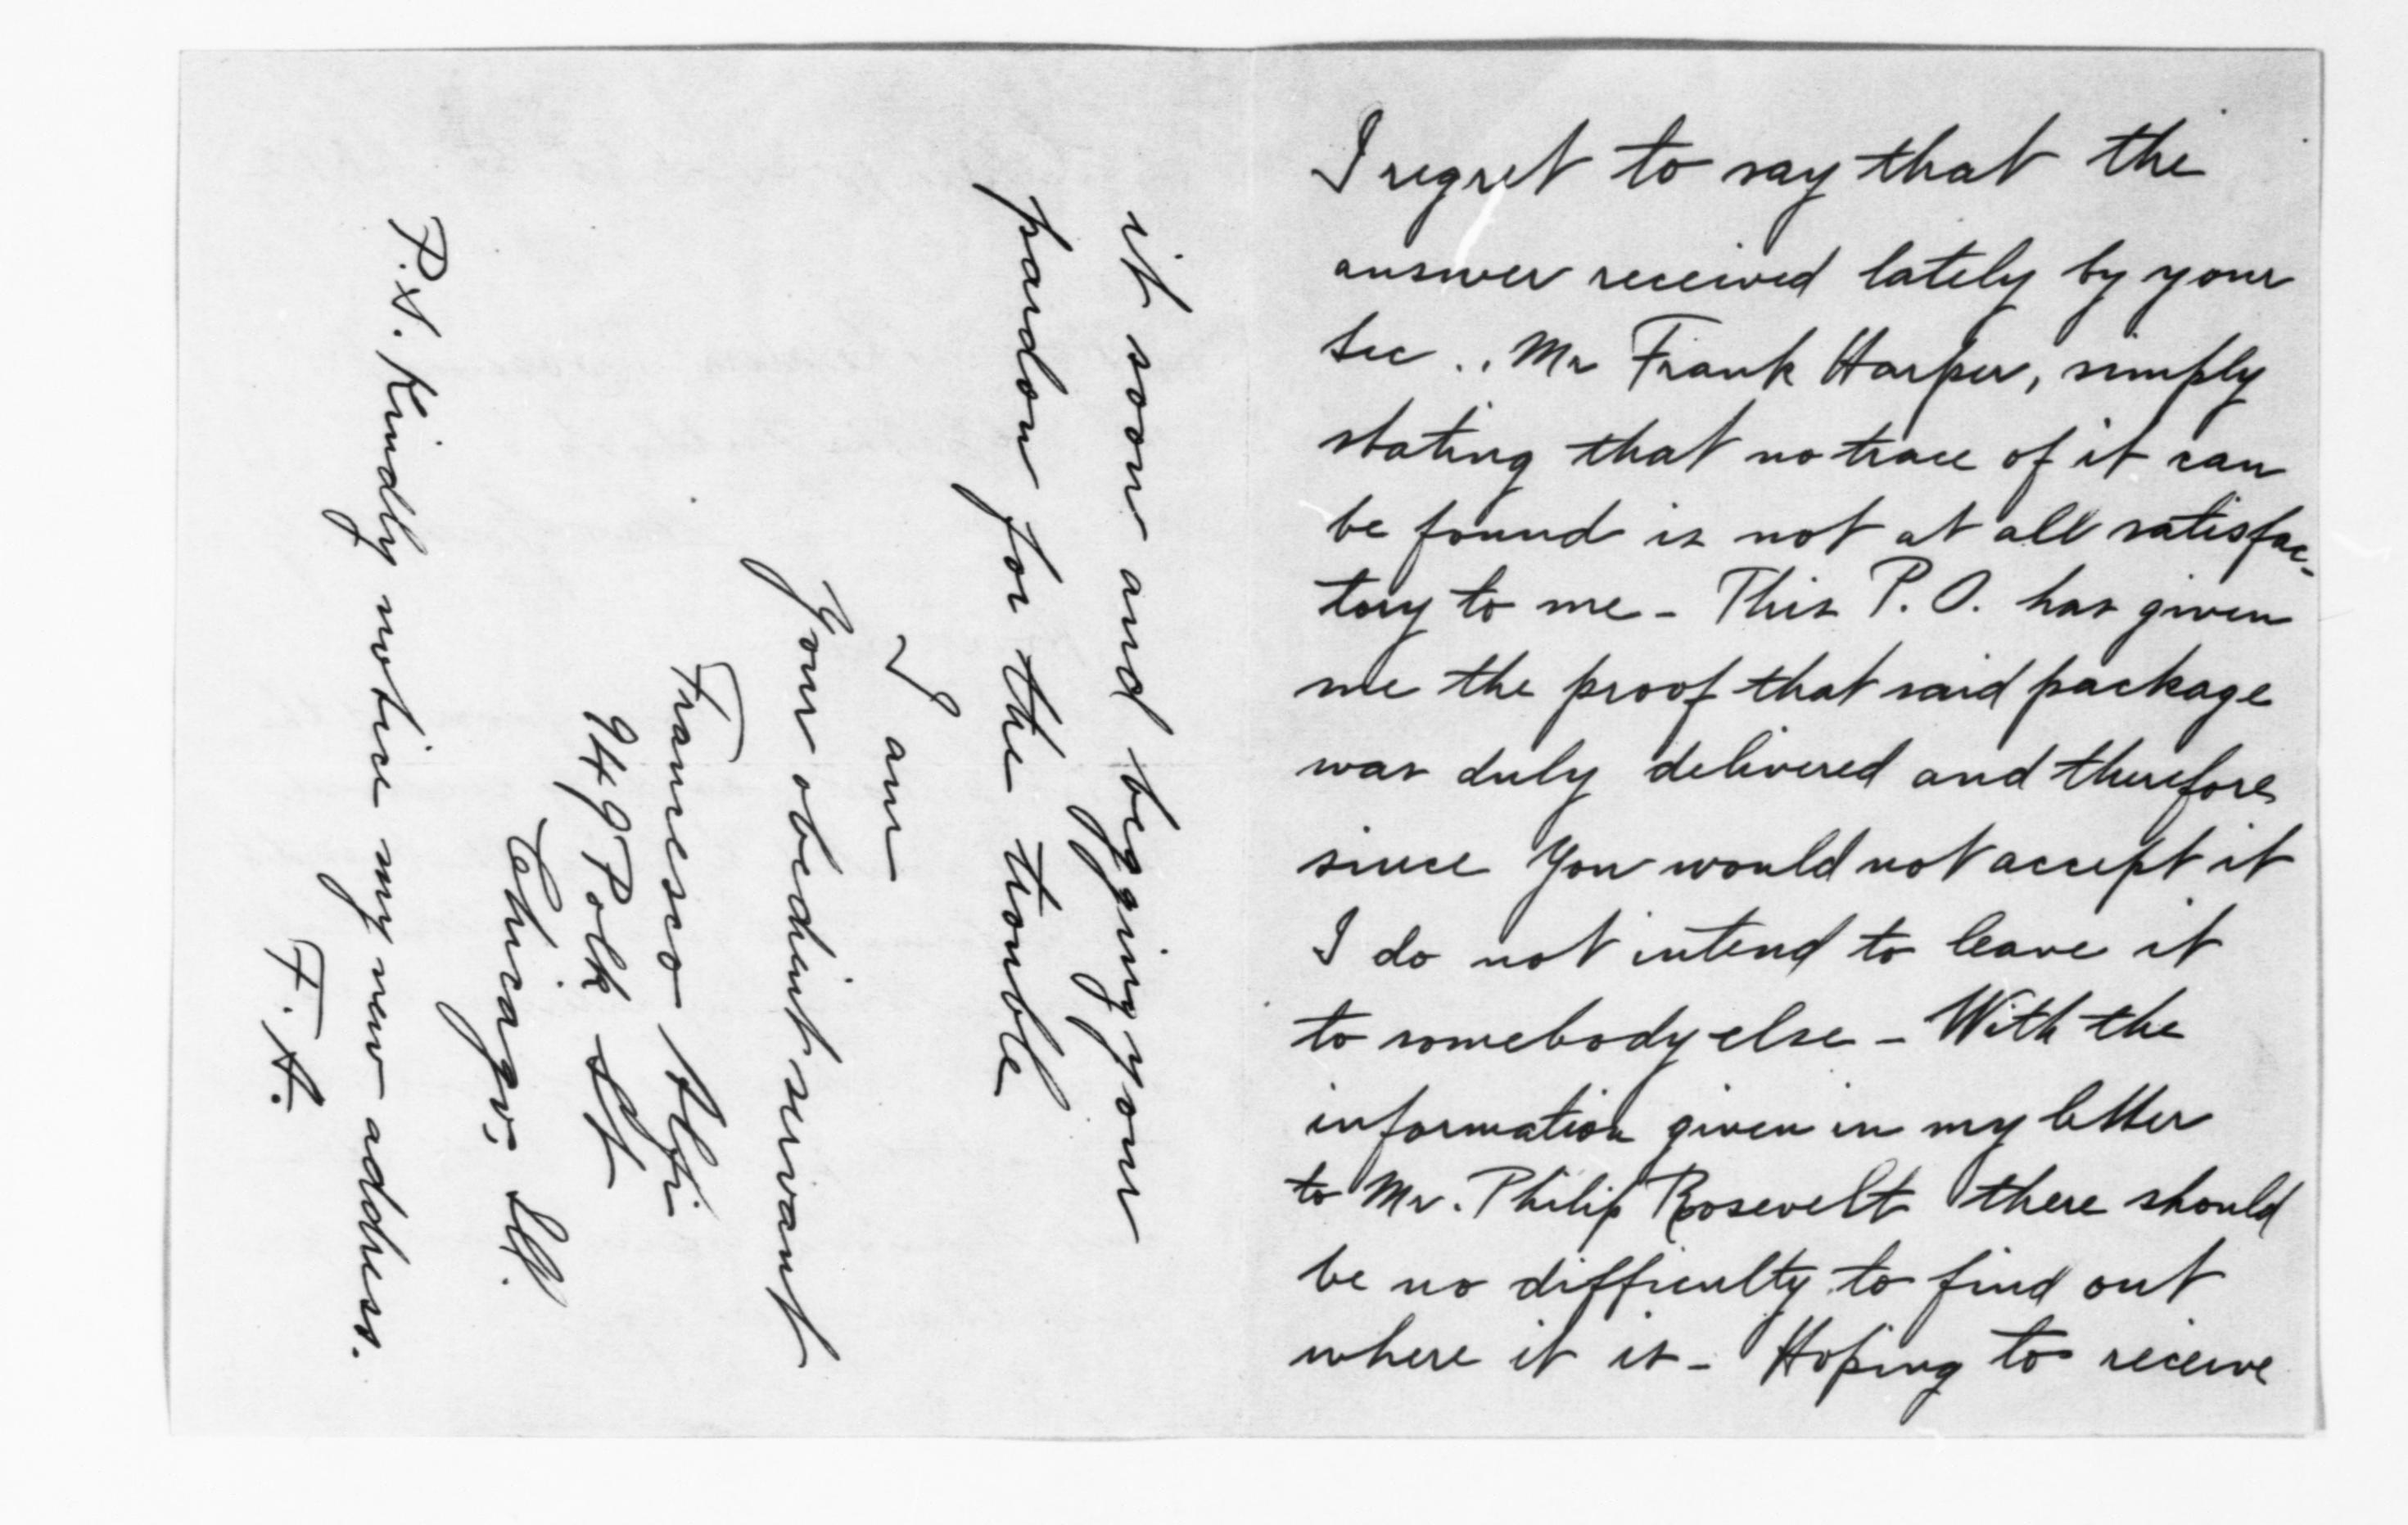 I regret to say that the
answer received lately by your
Sec.. Mr Frank Harper, simply
stating that no trace of it can
be found is not at all satisfac-
tory to me - This P. O. has given
me the proof that said package
was duly delivered and therefore
since You would not accept it
I do not intend to leave it
to somebody else - With the
information given in my letter
to Mr. Philip Rosevelt there should
be no difficulty to find out
where it is - Hoping to receive
it soon and begging your
pardon for the trouble
I am
Your obedient servant
Francesco
949 Polk St
Chicago, Ill.
P.S. Kindly notice my new address.
F. A.